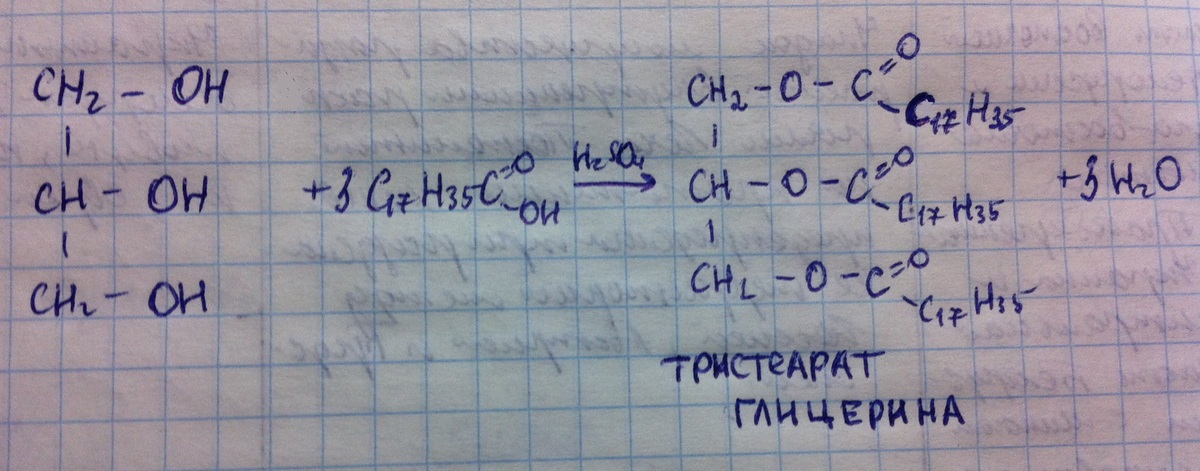 CH₂ – OH
CH – OH
CH₂ – OH
+3 C₁₇H₃₅C=O
–OH
H₂SO₄
→
CH₂ – O – C=O
C₁₇H₃₅
CH – O – C=O
C₁₇H₃₅
CH₂ – O – C=O
C₁₇H₃₅
+3 H₂O
ТРИСТЕАРАТ
ГЛИЦЕРИНА